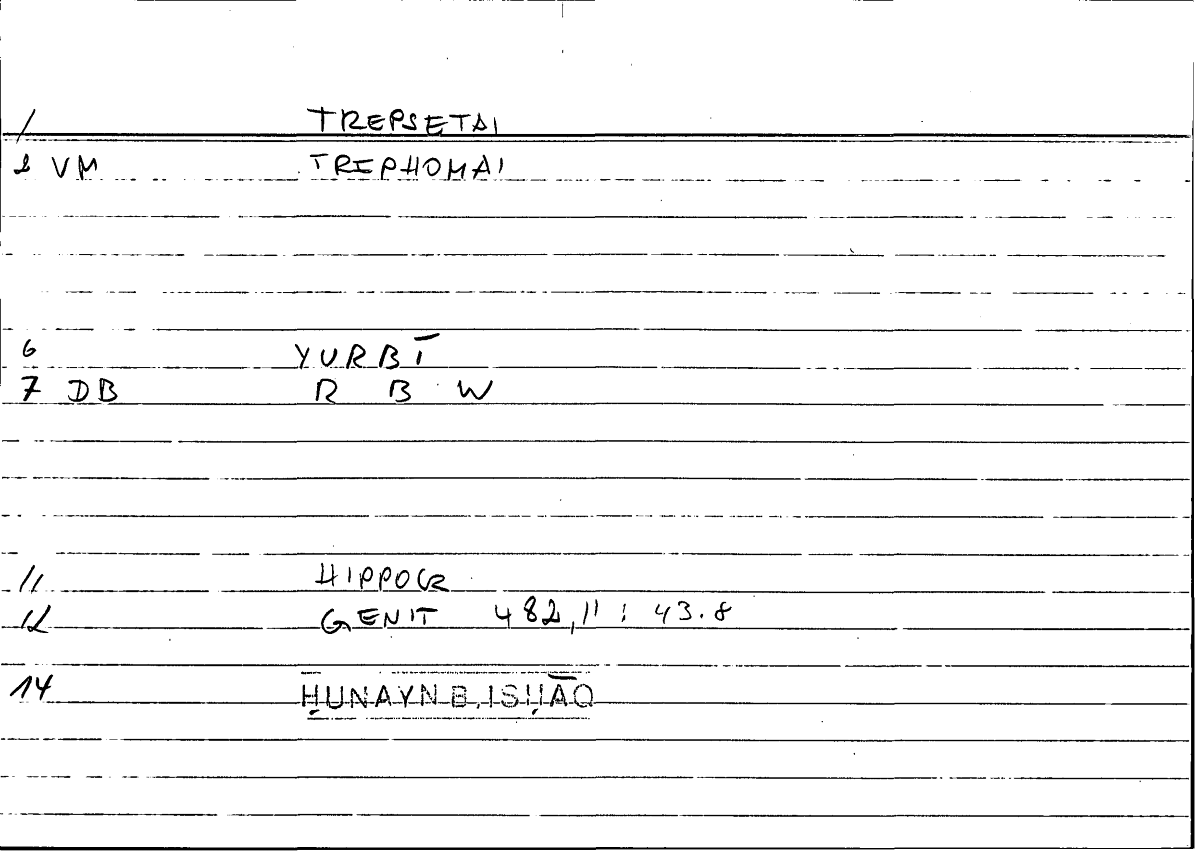 1 TREPSETAI
2 VM TREPHOMAI
6 YURBĪ
7 DB R B W
11 HIPPOCR
12 GENIT 482,11 : 43.8
14 ḤUNAYN B. ISḤĀQ